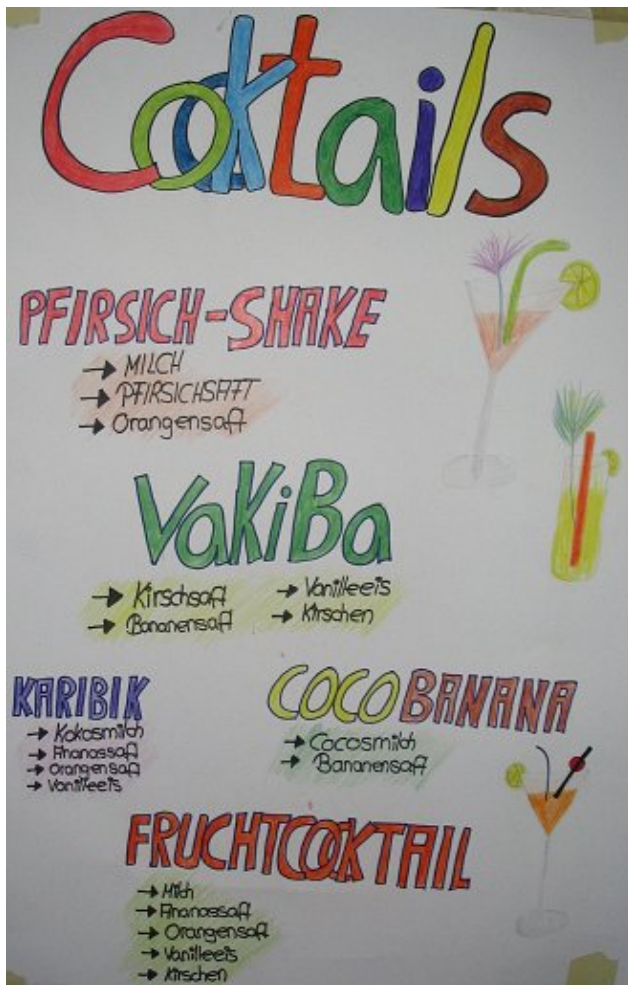 Cocktails
PFIRSICH-SHAKE
→ MILCH
→ PFIRSICHSAFT
→ Orangensaft
VaKiBa
→ Kirschsaft → Vanilleeis
→ Bananensaft → Kirschen
KARIBIK
→ Kokosmilch
→ Ananassaft
→ Orangensaft
→ Vanilleeis
COCOBANANA
→ Cocosmilch
→ Bananensaft
FRUCHTCOCKTAIL
→ Milch
→ Ananassaft
→ Orangensaft
→ Vanilleeis
→ Kirschen